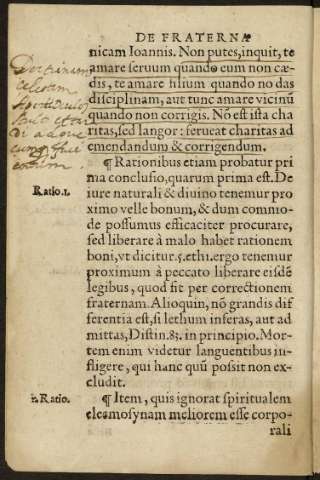 DE FRATERNÆ
nicam Ioannis. Non putes, inquit, te
amare seruum quando eum non cæ-
dis, te amare filium quando no das
disciplinam, aut tunc amare vicinũ
quando non corrigis. Nõ est ista cha
ritas, sed langor: ferueat charitas ad
emendandum & corrigendum.
¶ Rationibus etiam probatur pri
ma conclusio, quarum prima est. De
Ratio.1.
iure naturali & diuino tenemur pro
ximo velle bonum, & dum commo-
de possumus efficaciter procurare,
sed liberare à malo habet rationem
boni, vt dicitur.5.ethi.ergo tenemur
proximum à peccato liberare eisdẽ
legibus, quod fit per correctionem
fraternam. Alioquin, nõ grandis dif
ferentia est, si lethum inferas, aut ad
mittas, Distin.83. in principio. Mor-
tem enim videtur languentibus in-
fligere, qui hanc quũ possit non ex-
cludit.
2. Ratio.
¶ Item, quis ignorat spiritualem
eleemosynam meliorem esse corpo-
rali